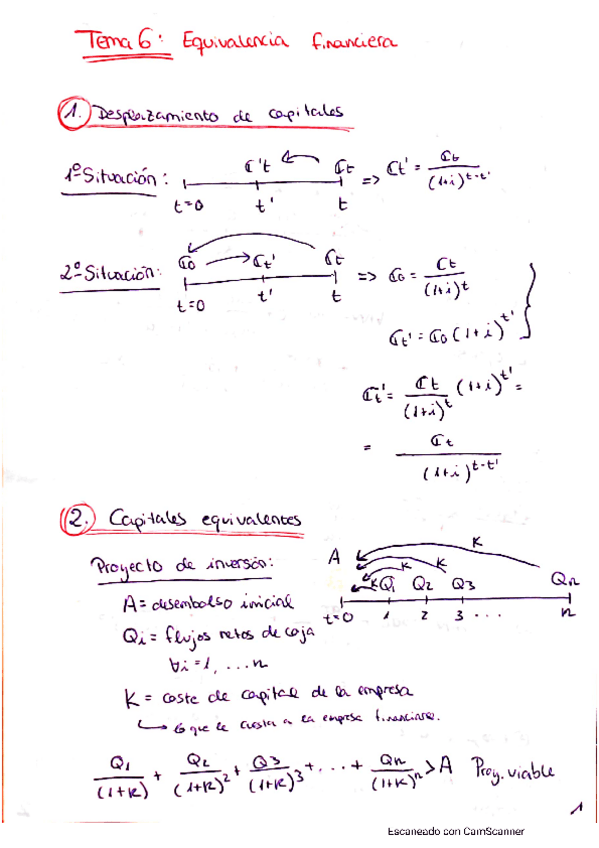 Tema 6: Equivalencia financiera
1. Desplazamiento de capitales
1º Situación: C't Ct => Ct' = Ct / (1+i)^t-t'
t=0 t' t
2º Situación: C0 Ct' Ct => C0 = Ct / (1+i)^t
t=0 t' t
Ct' = C0 (1+i)^t'
Ct' = Ct / (1+i)^t (1+i)^t' =
= Ct / (1+i)^t-t'
2. Capitales equivalentes
Proyecto de inversión:
A = desembolso inicial
Qi = flujos netos de caja
∀i = 1, ... n
K = coste de capital de la empresa
lo que le cuesta a la empresa financiarse.
A K K K Q1 Q2 Q3 Qn
t=0 1 2 3 ... n
Q1 / (1+K) + Q2 / (1+K)^2 + Q3 / (1+K)^3 + ... + Qn / (1+K)^n > A Proy. viable
1
Escaneado con CamScanner